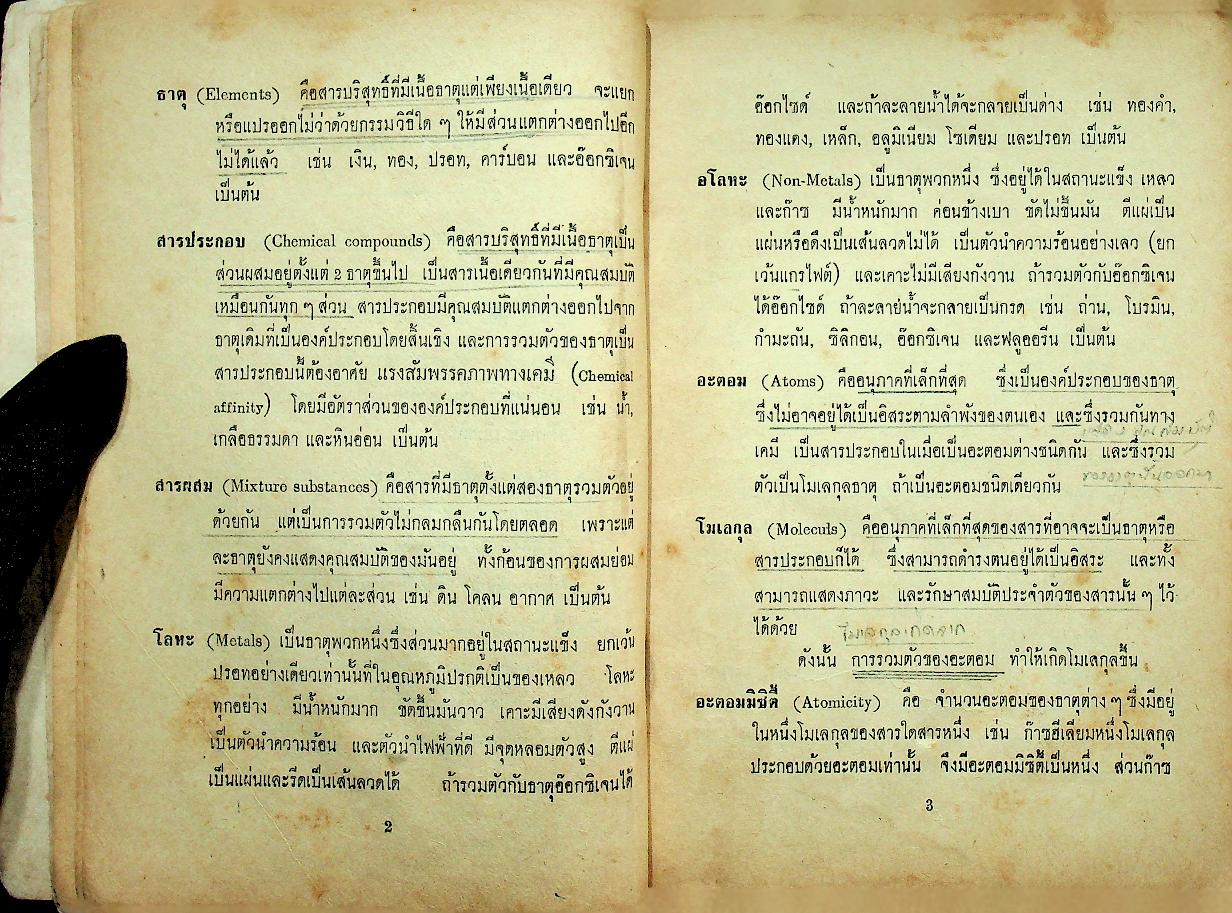 ธาตุ (Elements) คือสารบริสุทธิ์ที่มีเนื้อธาตุแต่เพียงเนื้อเดียว จะแยก
หรือแปรออกไม่ว่าด้วยกรรมวิธีใด ๆ ให้มีส่วนแตกต่างออกไปอีก
ไม่ได้แล้ว เช่น เงิน, ทอง, ปรอท, คาร์บอน และอ๊อกซิเจน
เป็นต้น
สารประกอบ (Chemical compounds) คือสารบริสุทธิ์ที่มีเนื้อธาตุเป็น
ส่วนผสมอยู่ตั้งแต่ 2 ธาตุขึ้นไป เป็นสารเนื้อเดียวกันที่มีคุณสมบัติ
เหมือนกันทุก ๆ ส่วน สารประกอบมีคุณสมบัติแตกต่างออกไปจาก
ธาตุเดิมที่เป็นองค์ประกอบโดยสิ้นเชิง และการรวมตัวของธาตุเป็น
สารประกอบนี้ต้องอาศัย แรงสัมพรรคภาพทางเคมี (Chemical
affinity) โดยมีอัตราส่วนขององค์ประกอบที่แน่นอน เช่น น้ำ,
เกลือธรรมดา และหินอ่อน เป็นต้น
สารผสม (Mixture substances) คือสารที่มีธาตุตั้งแต่สองธาตุรวมตัวอยู่
ด้วยกัน แต่เป็นการรวมตัวไม่กลมกลืนกันโดยตลอด เพราะแต่
ละธาตุยังคงแสดงคุณสมบัติของมันอยู่ ทั้งก้อนของการผสมย่อม
มีความแตกต่างไปแต่ละส่วน เช่น ดิน โคลน อากาศ เป็นต้น
โลหะ (Metals) เป็นธาตุพวกหนึ่งซึ่งส่วนมากอยู่ในสถานะแข็ง ยกเว้น
ปรอทอย่างเดียวเท่านั้นที่ในอุณหภูมิปรกติเป็นของเหลว โลหะ
ทุกอย่าง มีน้ำหนักมาก ขัดขึ้นมันวาว เคาะมีเสียงดังกังวาน
เป็นตัวนำความร้อน และตัวนำไฟฟ้าที่ดี มีจุดหลอมตัวสูง ตีแผ่
เป็นแผ่นและรีดเป็นเส้นลวดได้ ถ้ารวมตัวกับธาตุอ๊อกซิเจนได้
2
อ๊อกไซด์ และถ้าละลายน้ำได้จะกลายเป็นด่าง เช่น ทองคำ,
ทองแดง, เหล็ก, อลูมิเนียม โซเดียม และปรอท เป็นต้น
อโลหะ (Non-Metals) เป็นธาตุพวกหนึ่ง ซึ่งอยู่ได้ในสถานะแข็ง เหลว
และก๊าซ มีน้ำหนักมาก ค่อนข้างเบา ขัดไม่ขึ้นมัน ตีแผ่เป็น
แผ่นหรือดึงเป็นเส้นลวดไม่ได้ เป็นตัวนำความร้อนอย่างเลว (ยก
เว้นแกรไฟต์) และเคาะไม่มีเสียงกังวาน ถ้ารวมตัวกับอ๊อกซิเจน
ได้อ๊อกไซด์ ถ้าละลายน้ำจะกลายเป็นกรด เช่น ถ่าน, โบรมิน,
กำมะถัน, ซิลิกอน, อ๊อกซิเจน และฟลูออรีน เป็นต้น
อะตอม (Atoms) คืออนุภาคที่เล็กที่สุด ซึ่งเป็นองค์ประกอบของธาตุ
ซึ่งไม่อาจอยู่ได้เป็นอิสระตามลำพังของตนเอง และซึ่งรวมกันทาง
เคมี เป็นสารประกอบในเมื่อเป็นอะตอมต่างชนิดกัน และซึ่งรวม
ตัวเป็นโมเลกุลธาตุ ถ้าเป็นอะตอมชนิดเดียวกัน
โมเลกุล (Moleculs) คืออนุภาคที่เล็กที่สุดของสารที่อาจจะเป็นธาตุหรือ
สารประกอบก็ได้ ซึ่งสามารถดำรงตนอยู่ได้เป็นอิสระ และทั้ง
สามารถแสดงภาวะ และรักษาสมบัติประจำตัวของสารนั้น ๆ ไว้
ได้ด้วย
ดังนั้น การรวมตัวของอะตอม ทำให้เกิดโมเลกุลขึ้น
อะตอมมิซิตี้ (Atomicity) คือ จำนวนอะตอมของธาตุต่าง ๆ ซึ่งมีอยู่
ในหนึ่งโมเลกุลของสารใดสารหนึ่ง เช่น ก๊าซฮีเลี่ยมหนึ่งโมเลกุล
ประกอบด้วยอะตอมเท่านั้น จึงมีอะตอมมิซิตี้เป็นหนึ่ง ส่วนก๊าซ
3